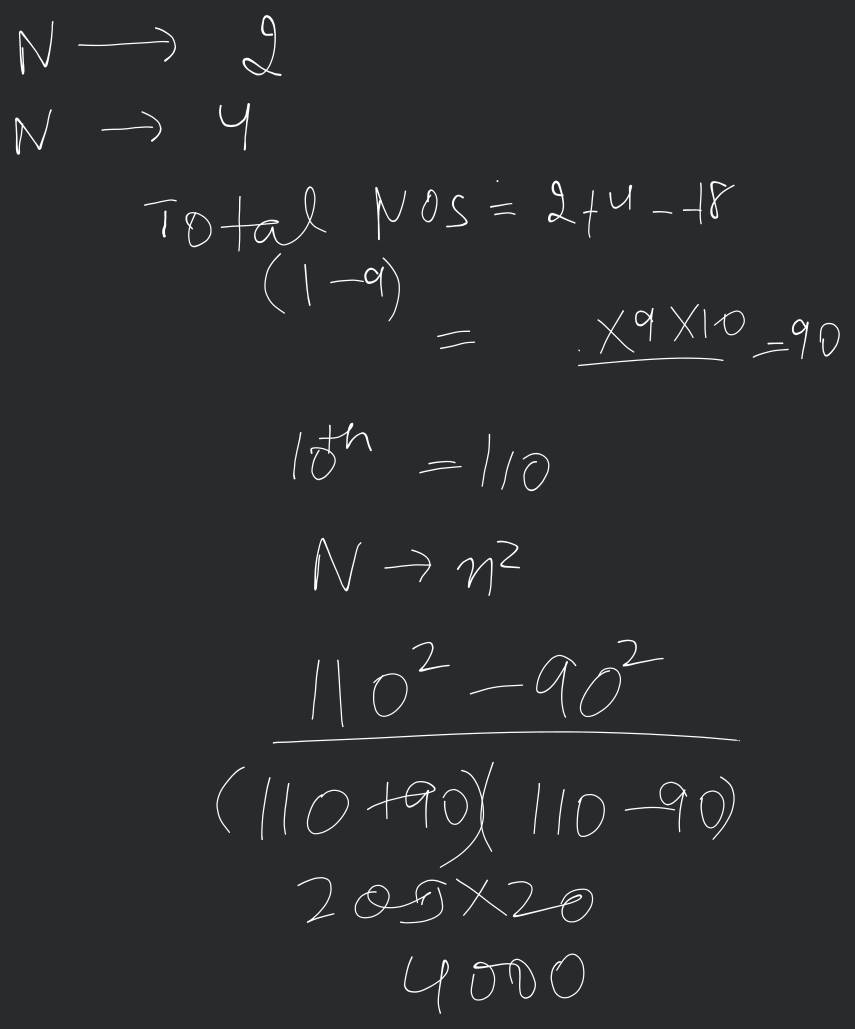 N → 2
N → 4
Total NOS = 2+4 - +8
(1-9)
= . x9 X10 = 90
10th = 110
N → n²
110² - 90²
(110 +90)( 110 -90)
200X20
4000